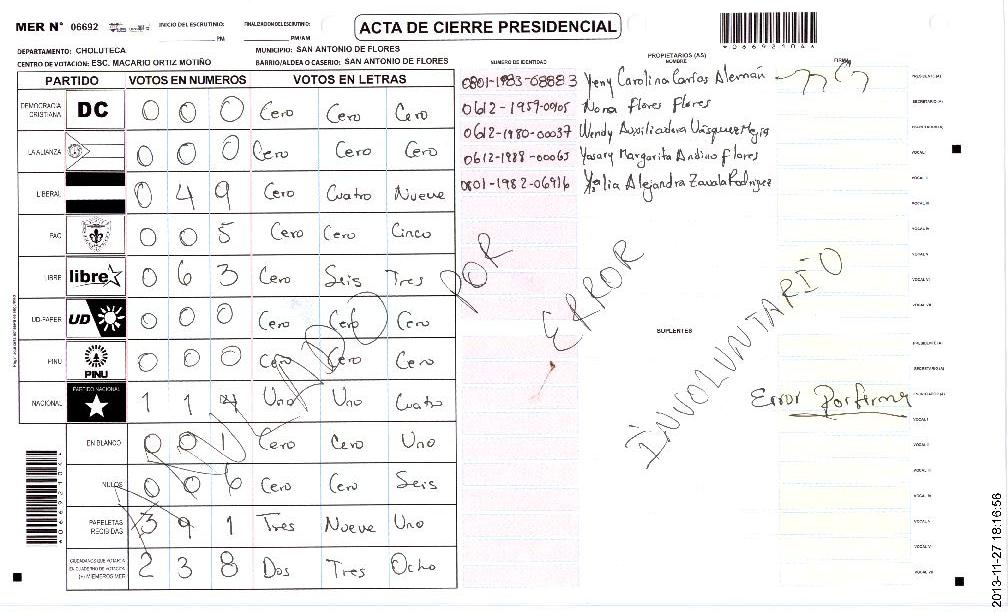 MER N° 06692 INICIO DEL ESCRUTINIO: PM FINALIZACION DEL ESCRUTINIO: PM/AM
ACTA DE CIERRE PRESIDENCIAL
DEPARTAMENTO: CHOLUTECA MUNICIPIO: SAN ANTONIO DE FLORES
CENTRO DE VOTACION: ESC. MACARIO ORTIZ MOTIÑO BARRIO/ALDEA O CASERIO: SAN ANTONIO DE FLORES
PARTIDO VOTOS EN NUMEROS VOTOS EN LETRAS
DEMOCRACIA CRISTIANA DC 0 0 0 Cero Cero Cero
LA ALIANZA 0 0 0 Cero Cero Cero
LIBERAL 0 4 9 Cero Cuatro Nueve
PAC 0 0 5 Cero Cero Cinco
LIBRE libre 0 6 3 Cero Seis Tres
UD-FAPER UD 0 0 0 Cero Cero Cero
PINU PINU 0 0 0 Cero Cero Cero
NACIONAL PARTIDO NACIONAL 1 1 4 Uno Uno Cuatro
EN BLANCO 0 0 1 Cero Cero Uno
NULOS 0 0 6 Cero Cero Seis
PAPELETAS RECIBIDAS 3 9 1 Tres Nueve Uno
CIUDADANOS QUE VOTARON EN CUADERNO DE VOTACION (+) MIEMBROS MER 2 3 8 Dos Tres Ocho
NUMERO DE IDENTIDAD PROPIETARIOS (AS) NOMBRE FIRMA
0801-1983-08883 Yeny Carolina Carias Alemán PRESIDENTE(A)
0612-1959-00105 Nora Flores Flores SECRETARIO(A)
0612-1980-00037 Wendy Auxiliadora Vásquez Mejia
0612-1988-00065 Yosary Margarita Andino Flores VOCAL I
0801-1982-06916 Yelia Alejandra Zavala Rodriguez VOCAL II
VOCAL III
VOCAL IV
VOCAL V
VOCAL VI
VOCAL VII
SUPLENTES
PRESIDENTE(A)
SECRETARIO(A)
VOCAL I
VOCAL II
VOCAL III
VOCAL IV
VOCAL V
VOCAL VI
VOCAL VII
ANULADO POR ERROR INVOLUNTARIO
Error por firma
2013-11-27 18:16:56